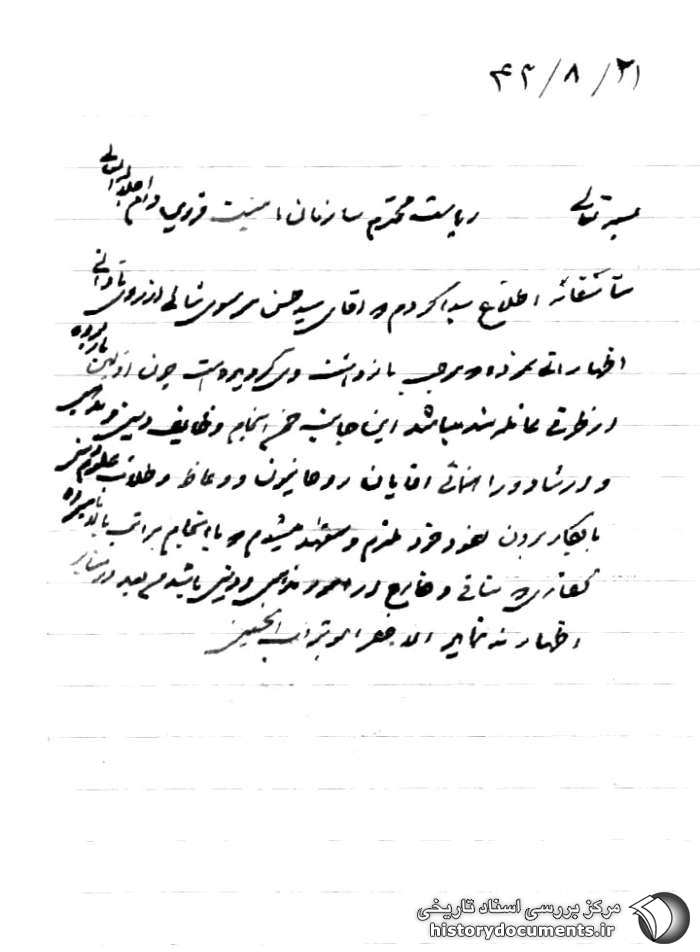 ۴۳/۸/۲۱
بسمه تعالی ریاست محترم سازمان امنیت قزوین دام اجلاله العالی
متأسفانه اطلاع پیدا کردم که آقای سید حسن موسوی شالی از روی نادانی
اظهاراتی نموده که موجب بازداشت وی گردیده است چون
از نظرتی میباشد این جانب ضمن انجام وظایف دینی و مذهبی
و ارشاد و راهنمائی آقایان روحانیون و وعاظ و طلاب علوم دینی
با بکار بردن نفوذ خود ملتزم و متعهد میشوم که با انجام مراتب بالا نامبرده
گفتاری که منافی و خارج از حدود مذهبی و دینی باشد من بعد در منابر
اظهار ننماید الاحقر ابوتراب الحسینی
مرکز بررسی اسناد تاریخی
historydocuments.ir